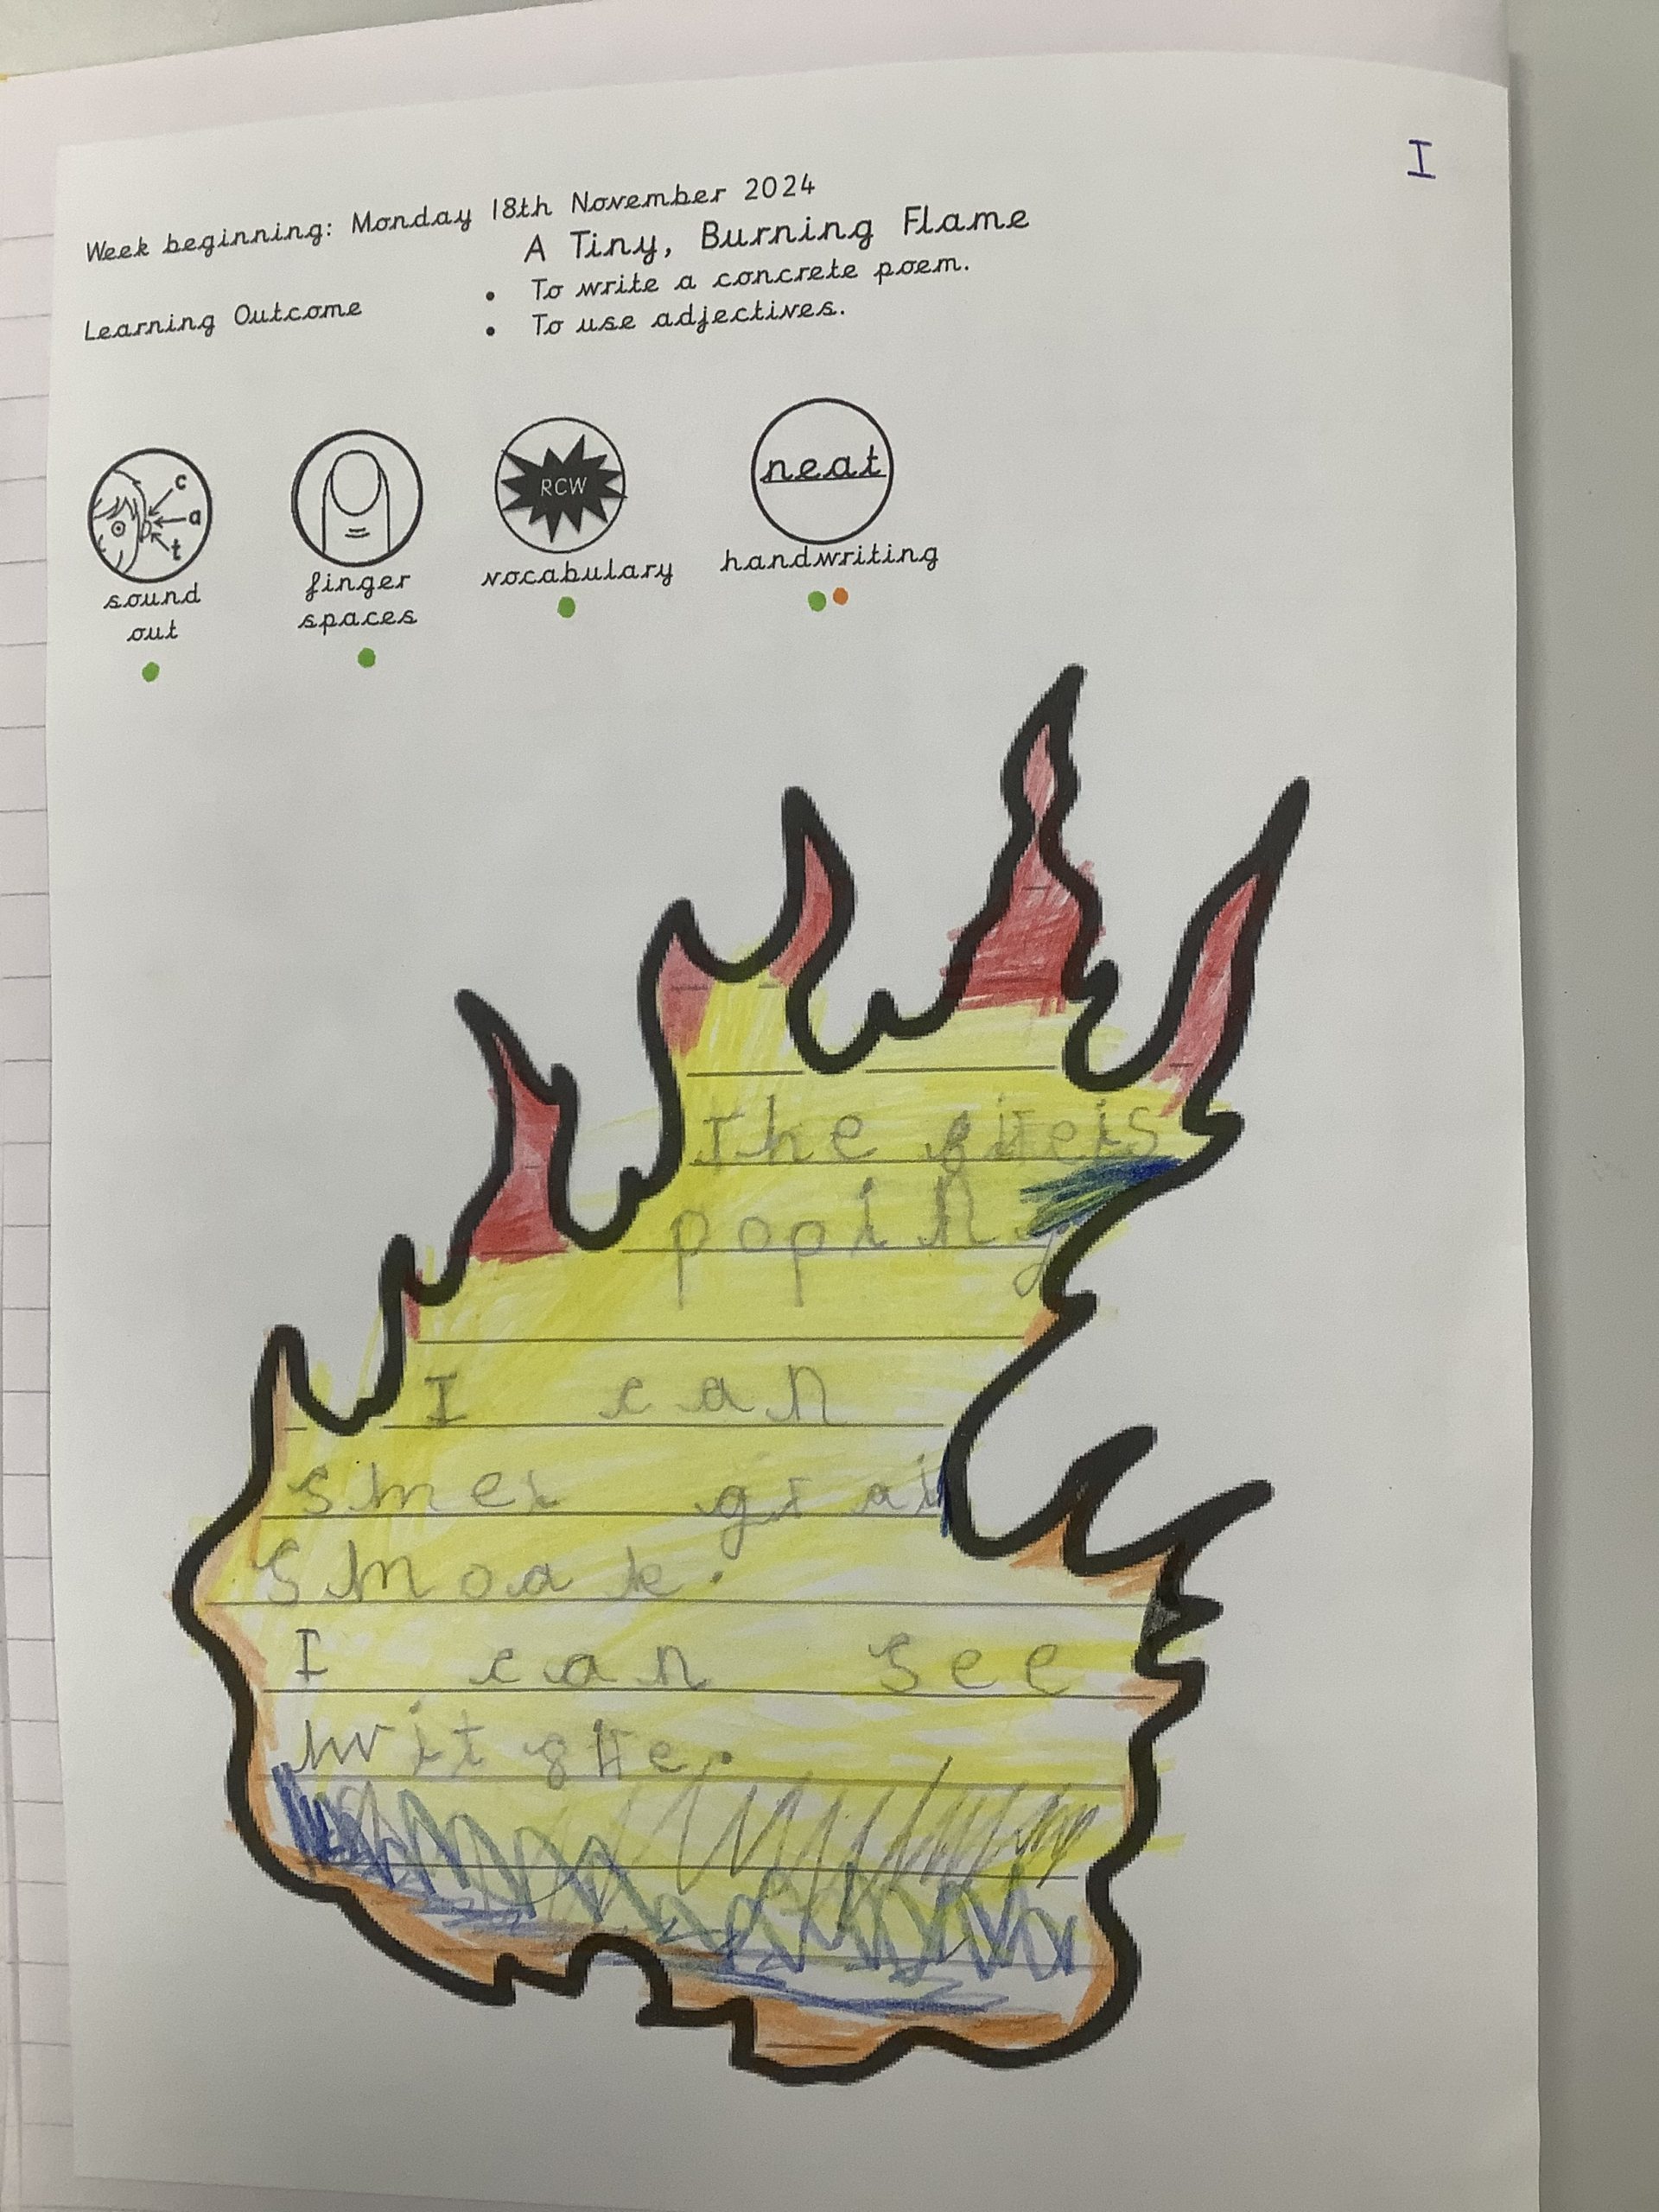 I
Week beginning: Monday 18th November 2024
A Tiny, Burning Flame
Learning Outcome
• To write a concrete poem.
• To use adjectives.
c
a
t
RCW
neat
sound out
finger spaces
vocabulary
handwriting
The fireis
poping
I can
smel grai
smoak.
I can see